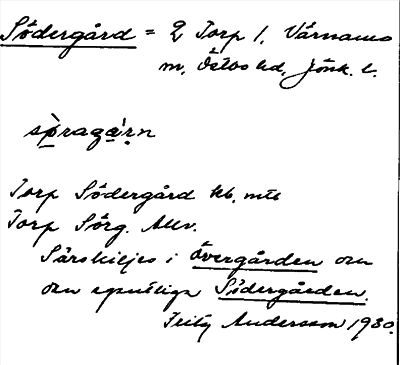 Södergård = 2 Torp 1, Värnamo
m, Östbo hd, Jönk. l.
spragaṛn
Torp Södergård kb, mtb
Torp Sörg. Allv.
Särskiljes i Övergården och
den egentliga Södergården.
Fritz Andersson 1930.